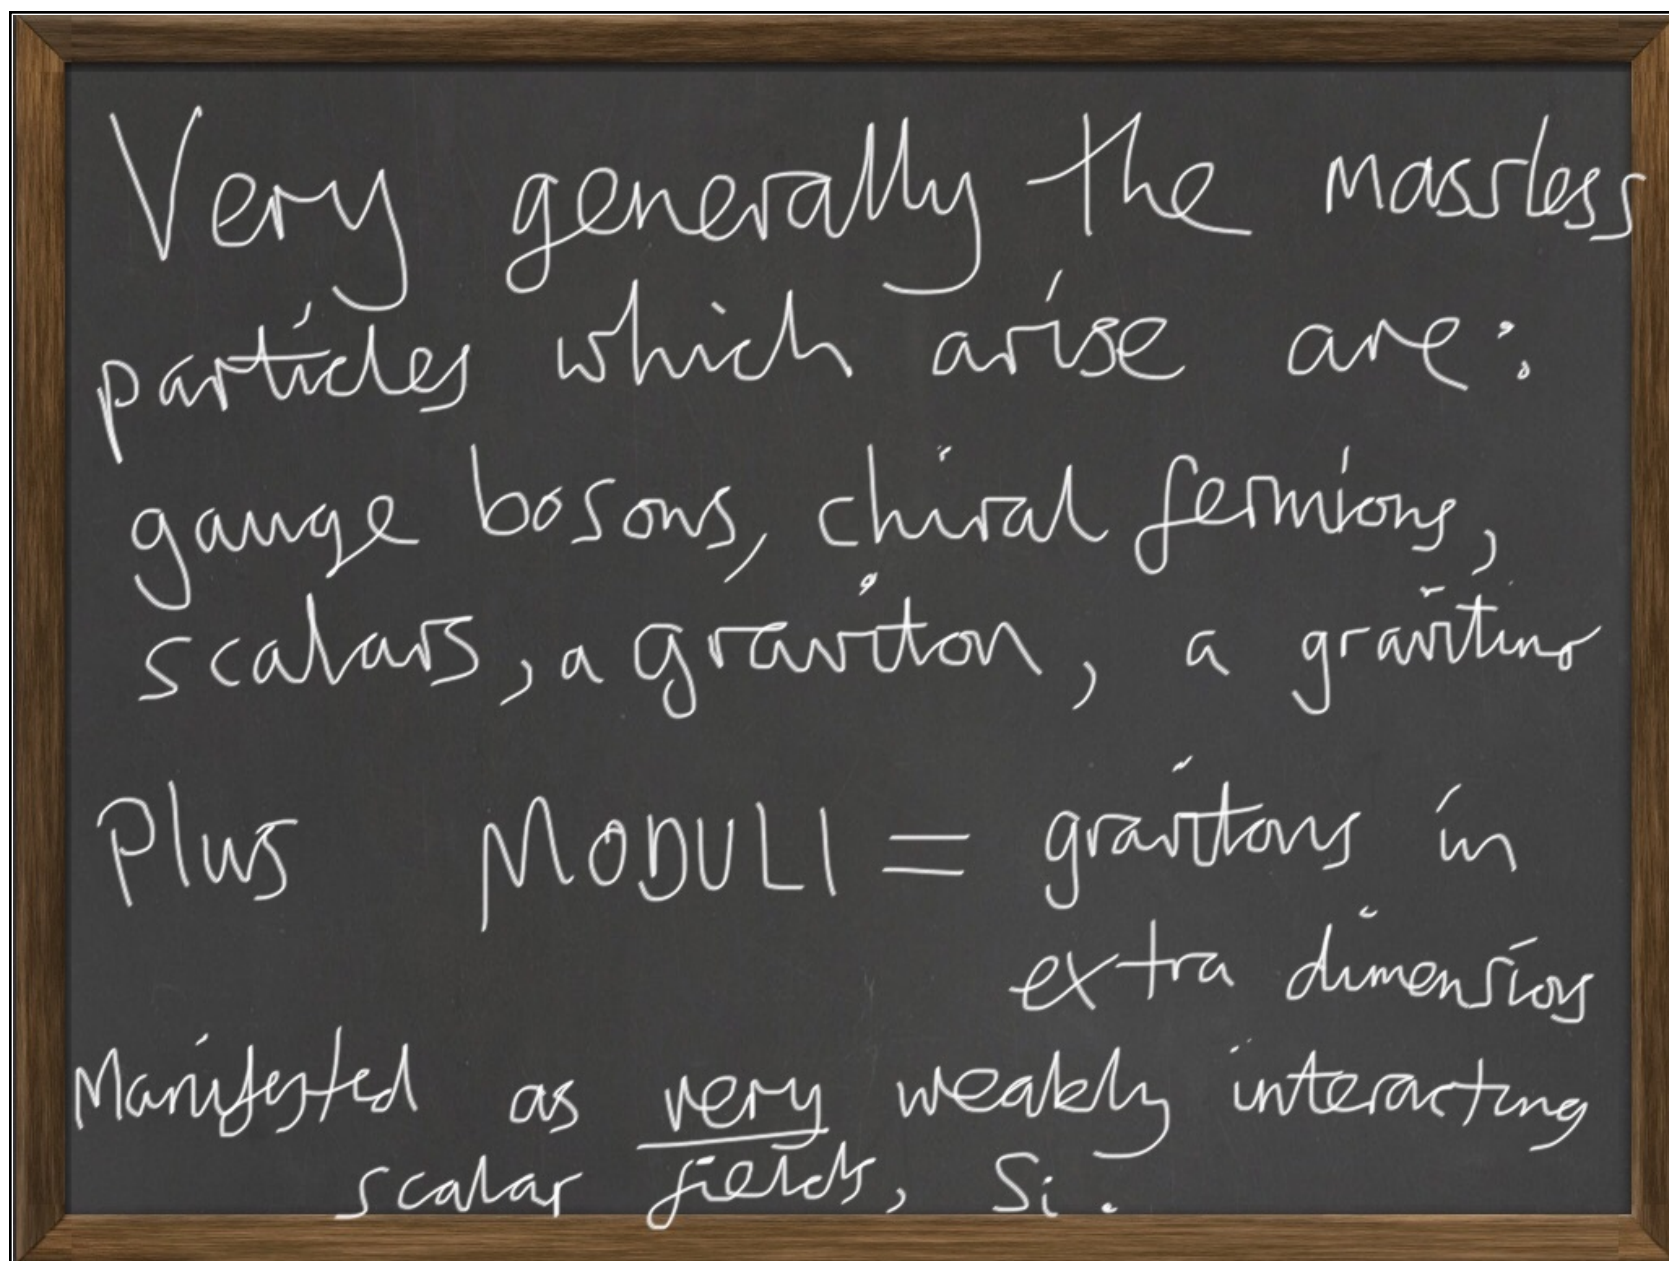 Very generally the massless
particles which arise are:
gauge bosons, chiral fermions,
scalars, a graviton, a gravitino
Plus MODULI = gravitons in
extra dimensions
Manifested as very weakly interacting
scalar fields, Si.